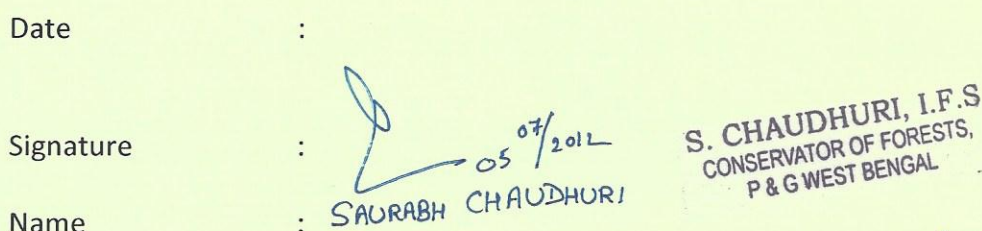 Date :
Signature :
05 07/2012
S. CHAUDHURI, I.F.S
CONSERVATOR OF FORESTS,
P & G WEST BENGAL
Name : SAURABH CHAUDHURI